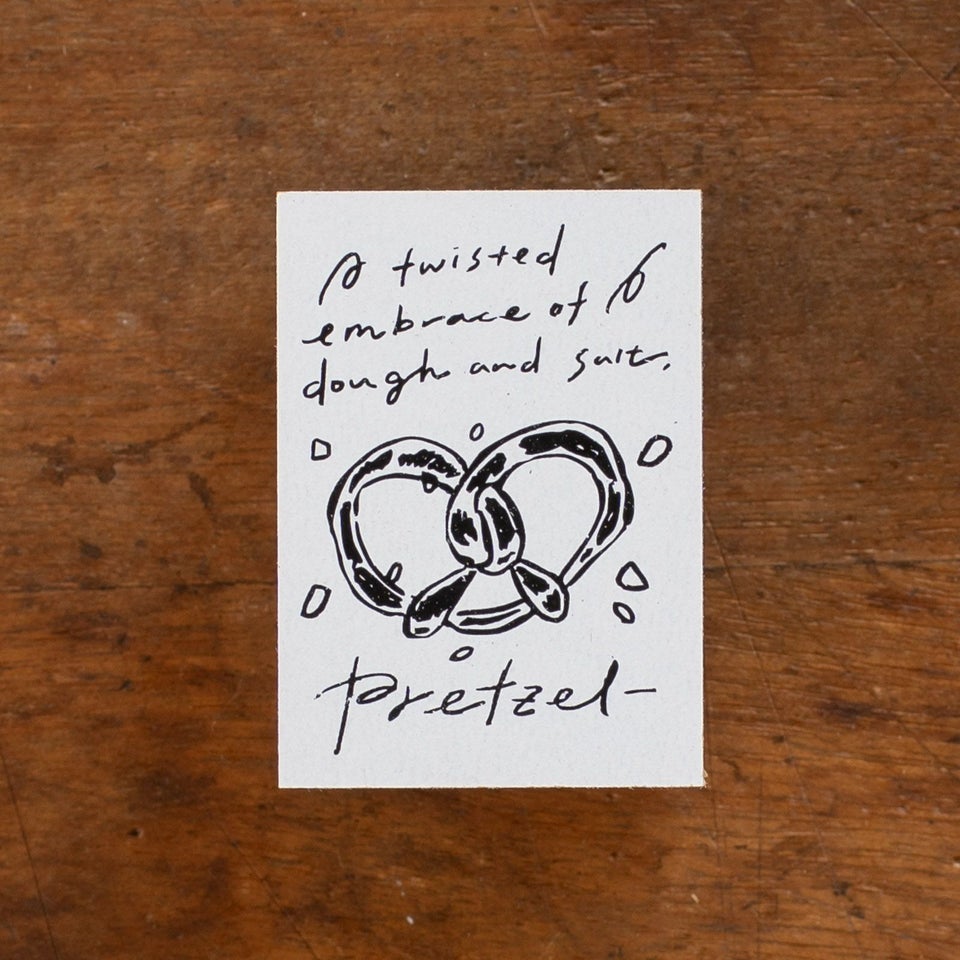 A twisted
embrace of
dough and salt.
pretzel